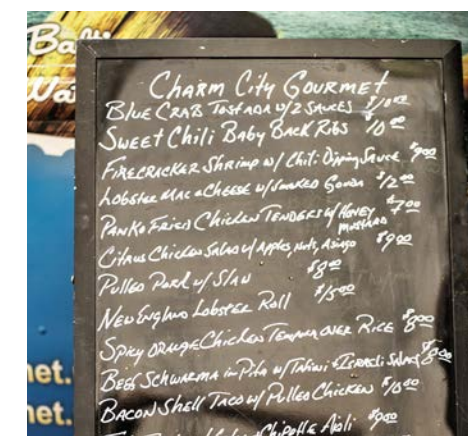 Balti
Wa
Charm City Gourmet
Blue Crab Tostada w/2 Sauces $10.00
Sweet Chili Baby Back Ribs $10.00
Firecracker Shrimp w/ Chili Dipping Sauce $9.00
Lobster Mac & Cheese w/ Smoked Gouda $12.00
Panko Fried Chicken Tenders w/ Honey Mustard $7.00
Citrus Chicken Salad w/ Apples, Nuts, Asiago $9.00
Pulled Pork w/ Slaw $8.00
New England Lobster Roll $15.00
Spicy Orange Chicken Tempura over Rice $8.00
Beef Schwarma in Pita w/ Tahini + Israeli Salad $8.00
Bacon Shell Taco w/ Pulled Chicken $10.00
Chipotle Aioli $9.00
net.
net.